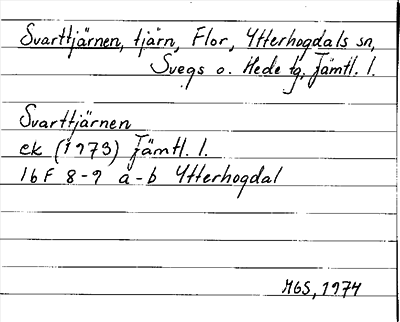 Svarttjärnen, tjärn, Flor, Ytterhogdals sn,
Svegs o. Hede tg, Jämtl. l.
Svarttjärnen
ek (1973) Jämtl. l.
16F 8-9 a-b Ytterhogdal
MGS, 1974